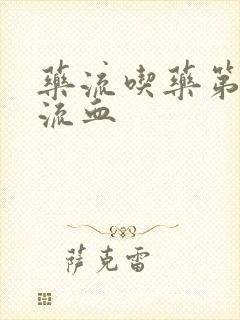 藥流喫藥第
流血
萨克雷